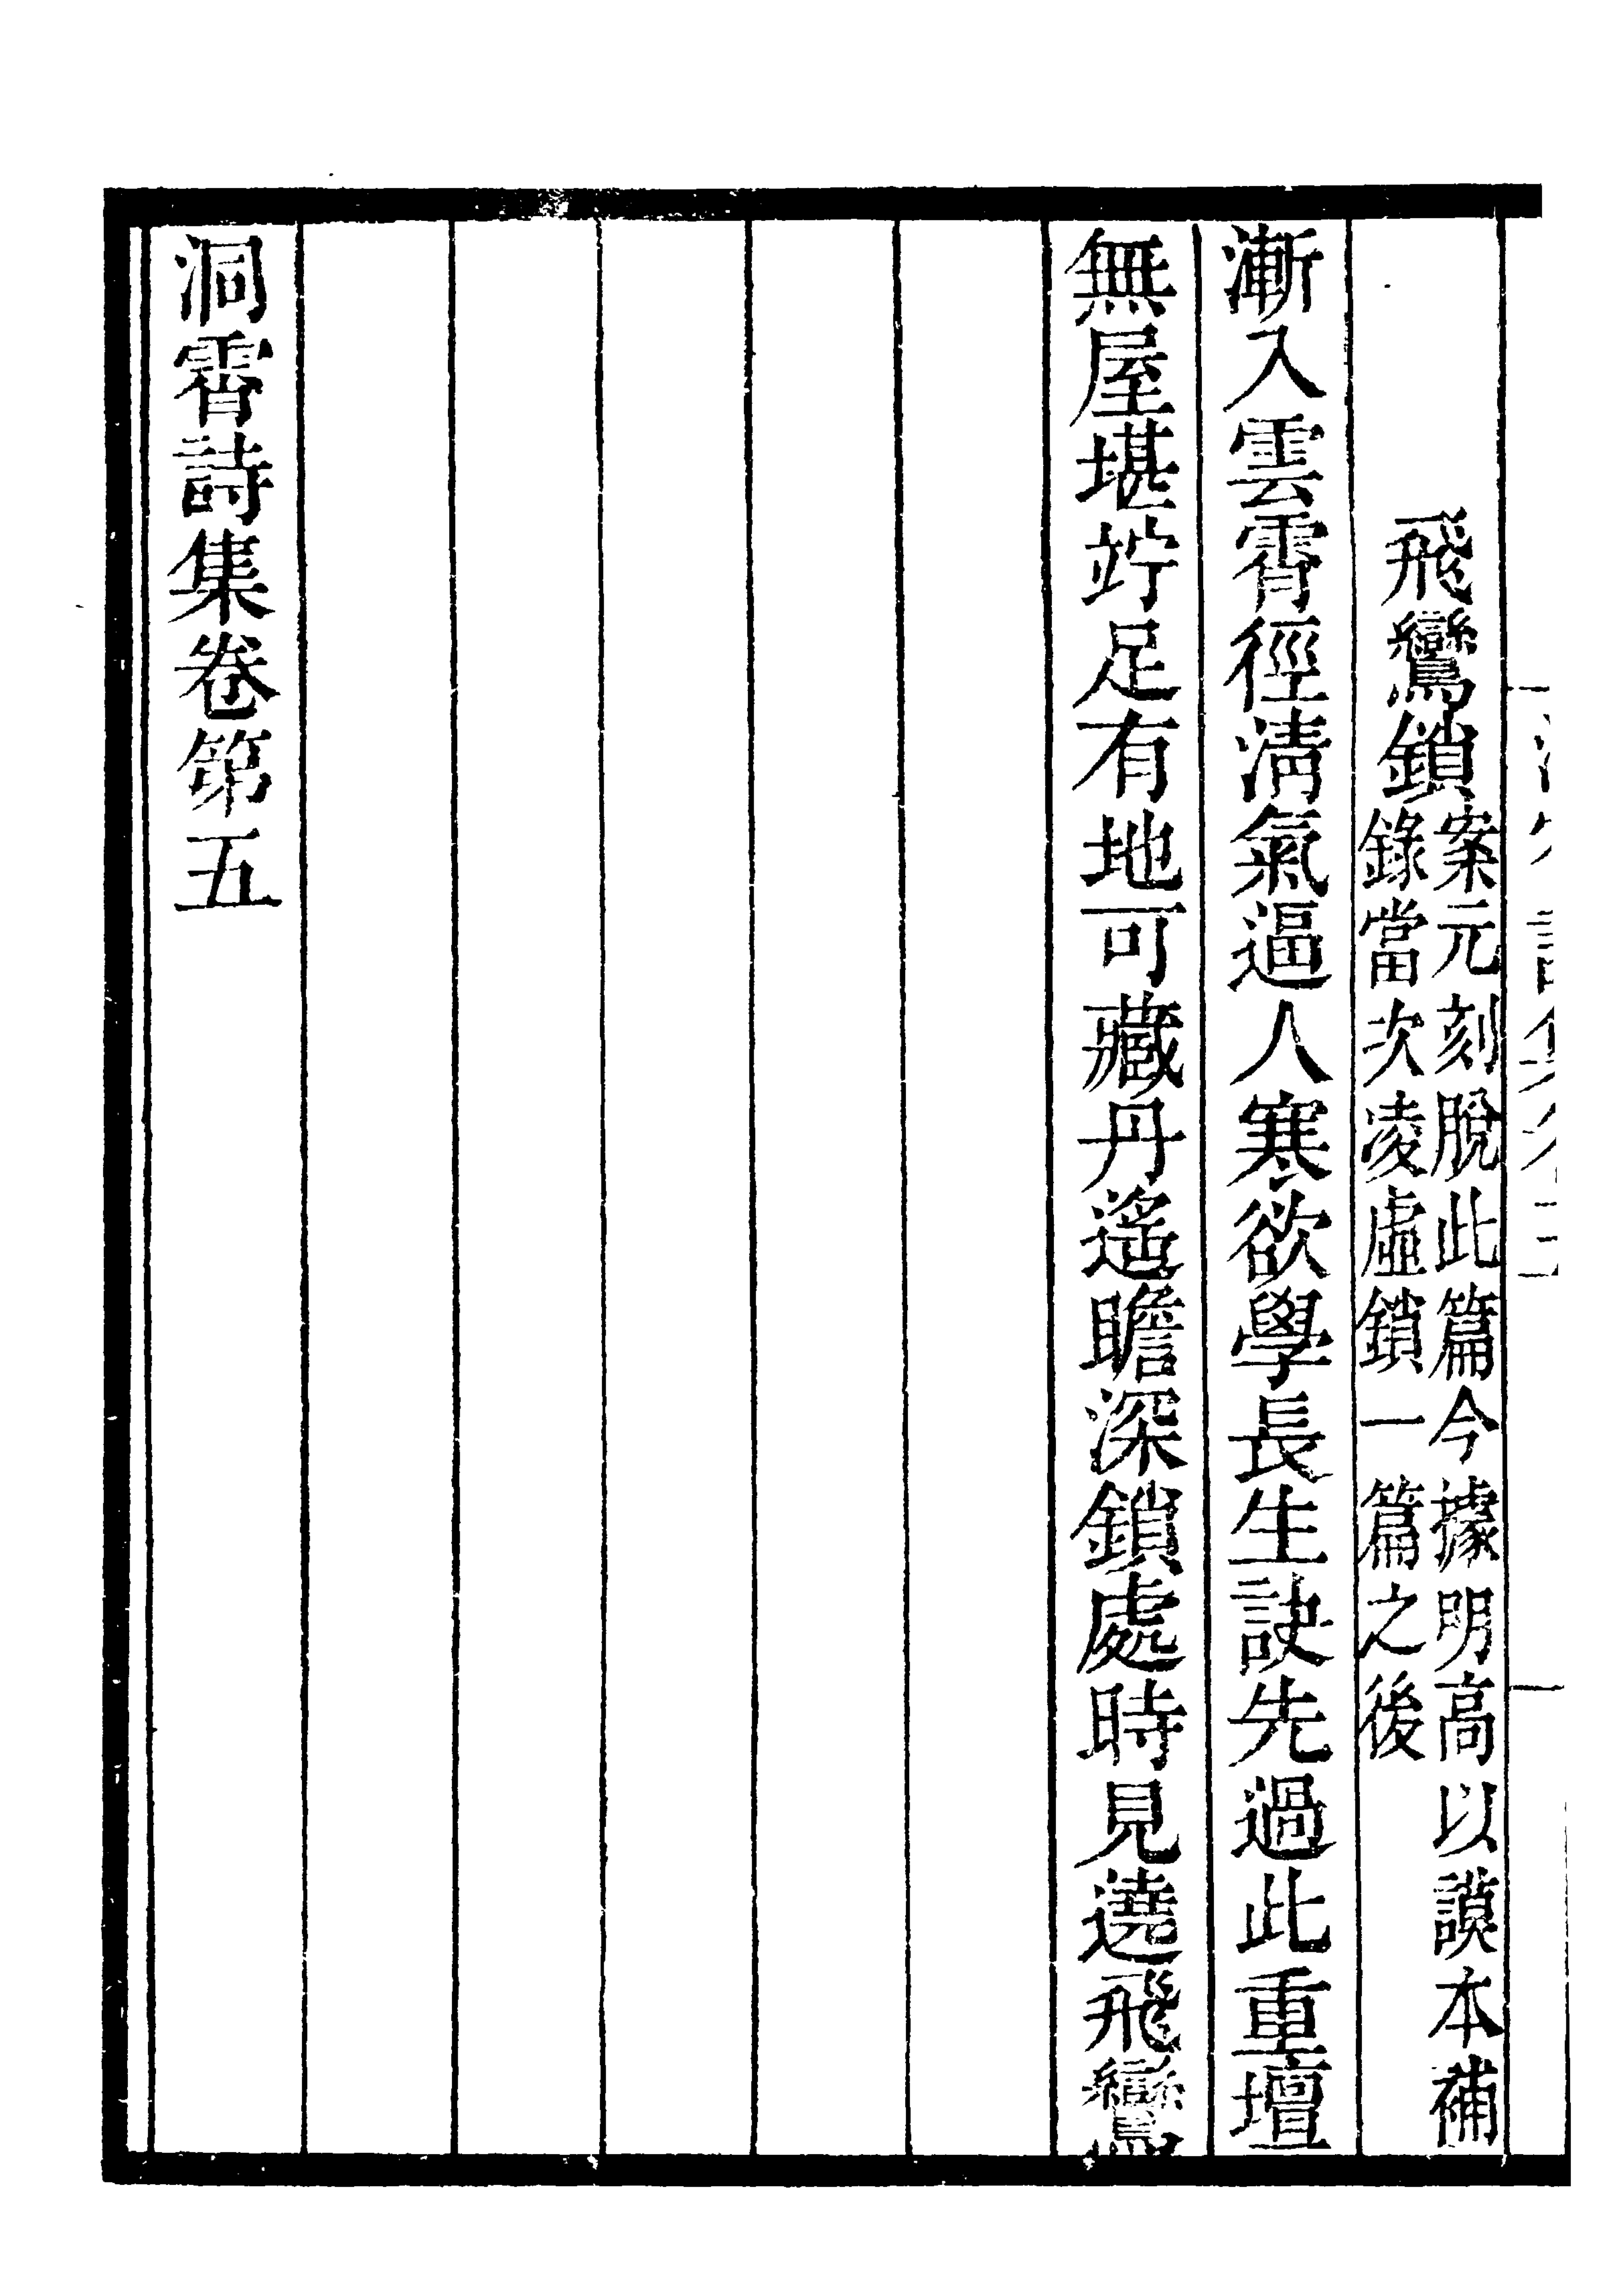 飛鸞鎖案元刻脫此篇今據明高以謨本補
錄當次凌虛鎖一篇之後
漸入雲霄徑淸氣逼人寒欲學長生訣先過此重壇
無屋堪竚足有地可藏丹遙瞻深鎖處時見遶飛鸞
洞霄詩集卷第五